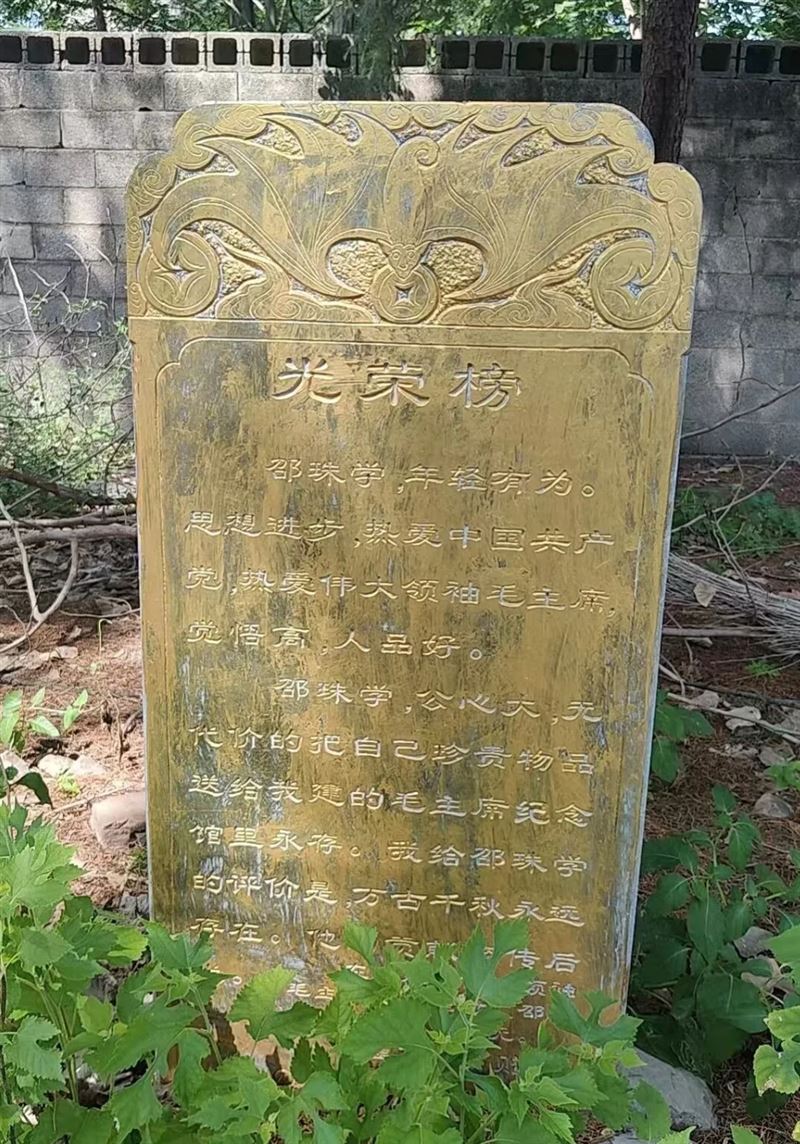 光荣榜
邵珠学,年轻有为。
思想进步,热爱中国共产
党,热爱伟大领袖毛主席,
觉悟高,人品好。
邵珠学,公心大,无
代价的把自己珍贵物品
送给我建的毛主席纪念
馆里永存。我给邵珠学
的评价是,万古千秋永远
存在。他 贡献 传后
。 毛主 领袖
邵